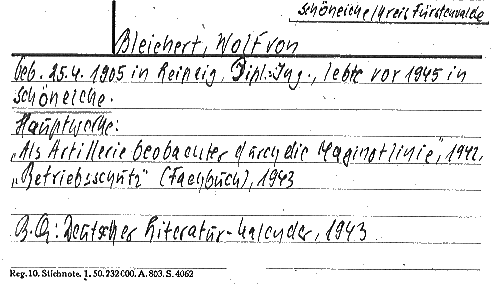 Schöneiche/Kreis Fürstenwalde
Bleichert, Wolf von
Geb. 25.4.1905 in Leipzig, Dipl.-Ing., lebte vor 1945 in
Schöneiche.
Hauptwerke:
„Als Artilleriebeobachter durch die Maginotlinie", 1942,
„Betriebsschutz" (Fachbuch), 1943
B.Qu: Deutscher Literatur-Kalender, 1943
Reg. 10. Stichnote. 1. 50. 232 000. A. 803. S. 4062